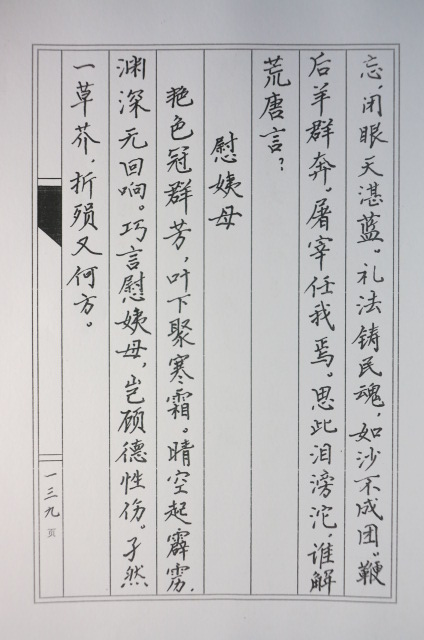 忘，闭眼天湛蓝。礼法铸民魂，如沙不成团。鞭
后羊群奔。屠宰任我焉。思此泪滂沱，谁解
荒唐言？
慰姨母
艳色冠群芳，叶下聚寒霜。晴空起霹雳，
渊深无回响。巧言慰姨母，岂顾德性伤。孑然
一草芥，折殒又何方。
一三九页